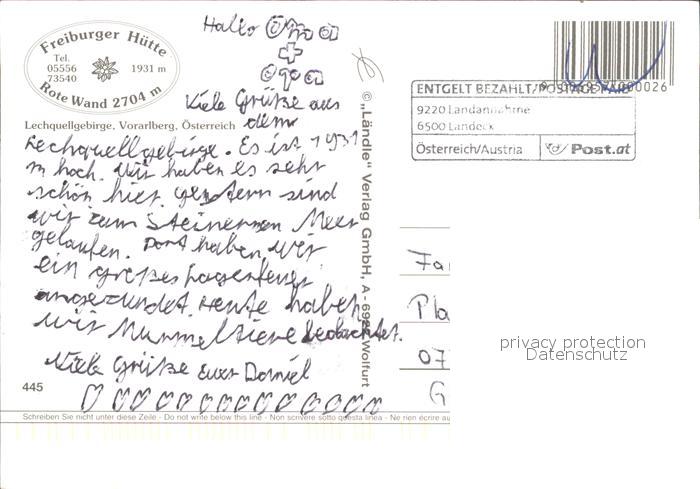 Freiburger Hütte
Tel.
05556
73540
1931 m
Rote Wand 2704 m
Lechquellgebirge, Vorarlberg, Österreich
Hallo Oma
+
Opa
Viele Grüße aus
dem
Lechquellgebirge. Es ist 1931
m hoch. Wir haben es sehr
schön hier. Gestern sind
wir zum Steinernen Meer
gelaufen. Dort haben wir
ein großes Lagerfeuer
angezündet. Heute haben
wir Murmeltiere beobachtet.
Viele Grüße Euer Daniel
445
Schreiben Sie nicht unter diese Zeile - Do not write below this line - Non scrivere sotto questa linea - Ne rien écrire au
© „Ländle" Verlag GmbH, A - 6922 Wolfurt
ENTGELT BEZAHLT/POSTAGE PAID
9220 Landannahme
6500 Landeck
Österreich/Austria
Post.at
Fa
Pla
07
G
privacy protection
Datenschutz